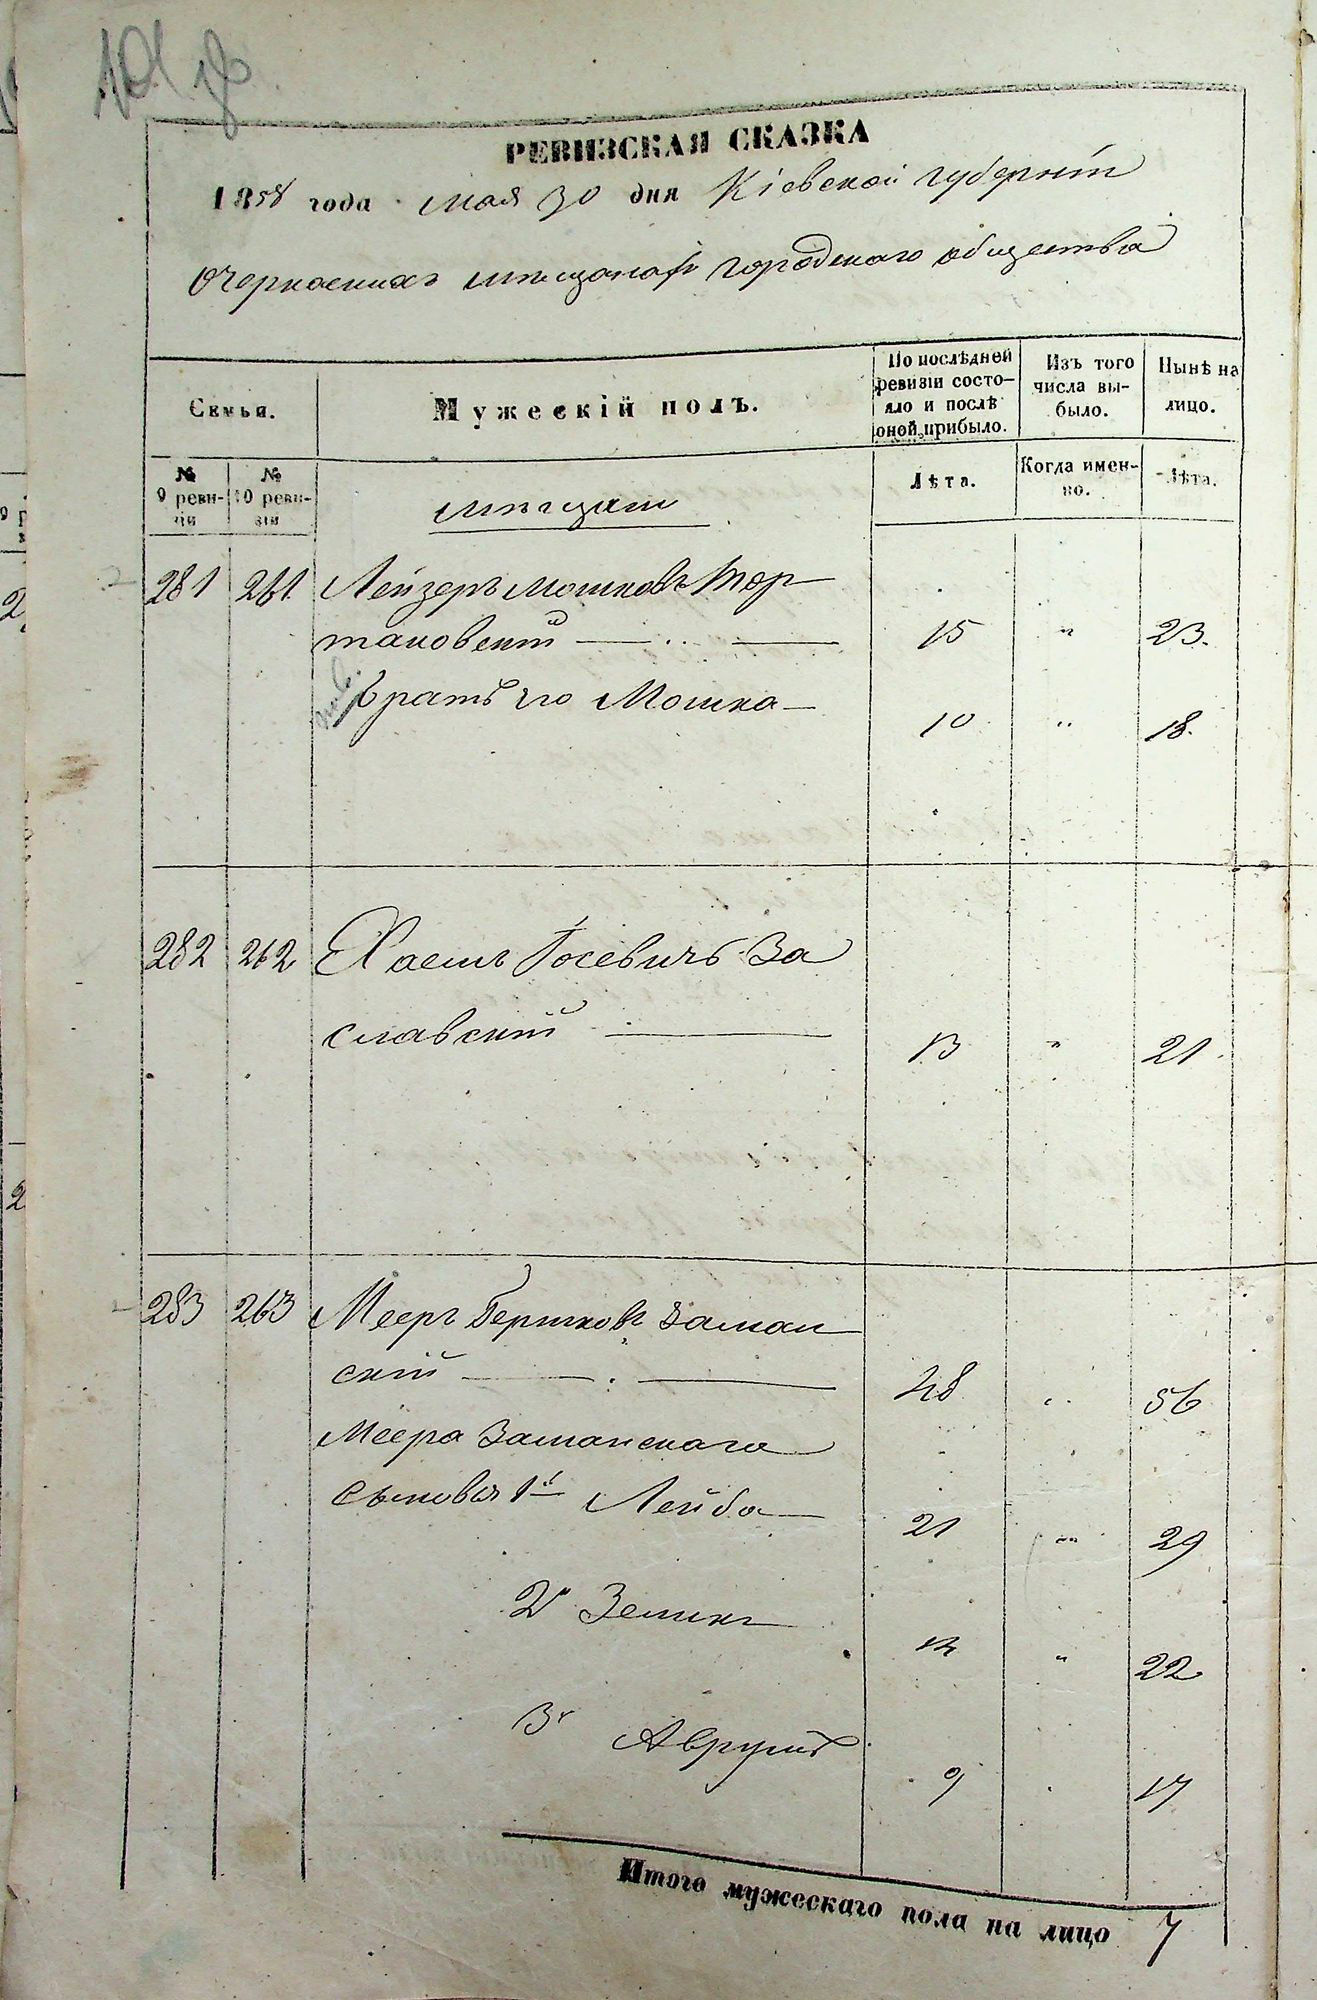 РЕВИЗСКАЯ СКАЗКА
1858 года мая 30 дня Кіевской губерніи
О Черкаскихъ мѣщанахъ городскаго общества
Семьи.
Мужескій полъ.
По послѣдней ревизіи состо-
яло и послѣ оной прибыло.
Изъ того числа вы-
было.
Нынѣ на лицо.
№ 9 реви-
зіи
№ 10 реви-
зіи
мѣщане
Лѣта.
Когда имен-
но.
Лѣта.
281 261 Лейзеръ Мошковъ Тор
таковскій 15 " 23.
братъ его Мошко 10 " 18.
282 262 Хаемъ Іосевичъ За
славскій 13 " 21
283 263 Мееръ Берковъ Заман
скій 48 " 56
Меера Заманскаго
сыновья 1й Лейба 21 " 29
2й Зеликъ " 22
3й Аврумъ 9 17
Итого мужескаго пола на лицо 7